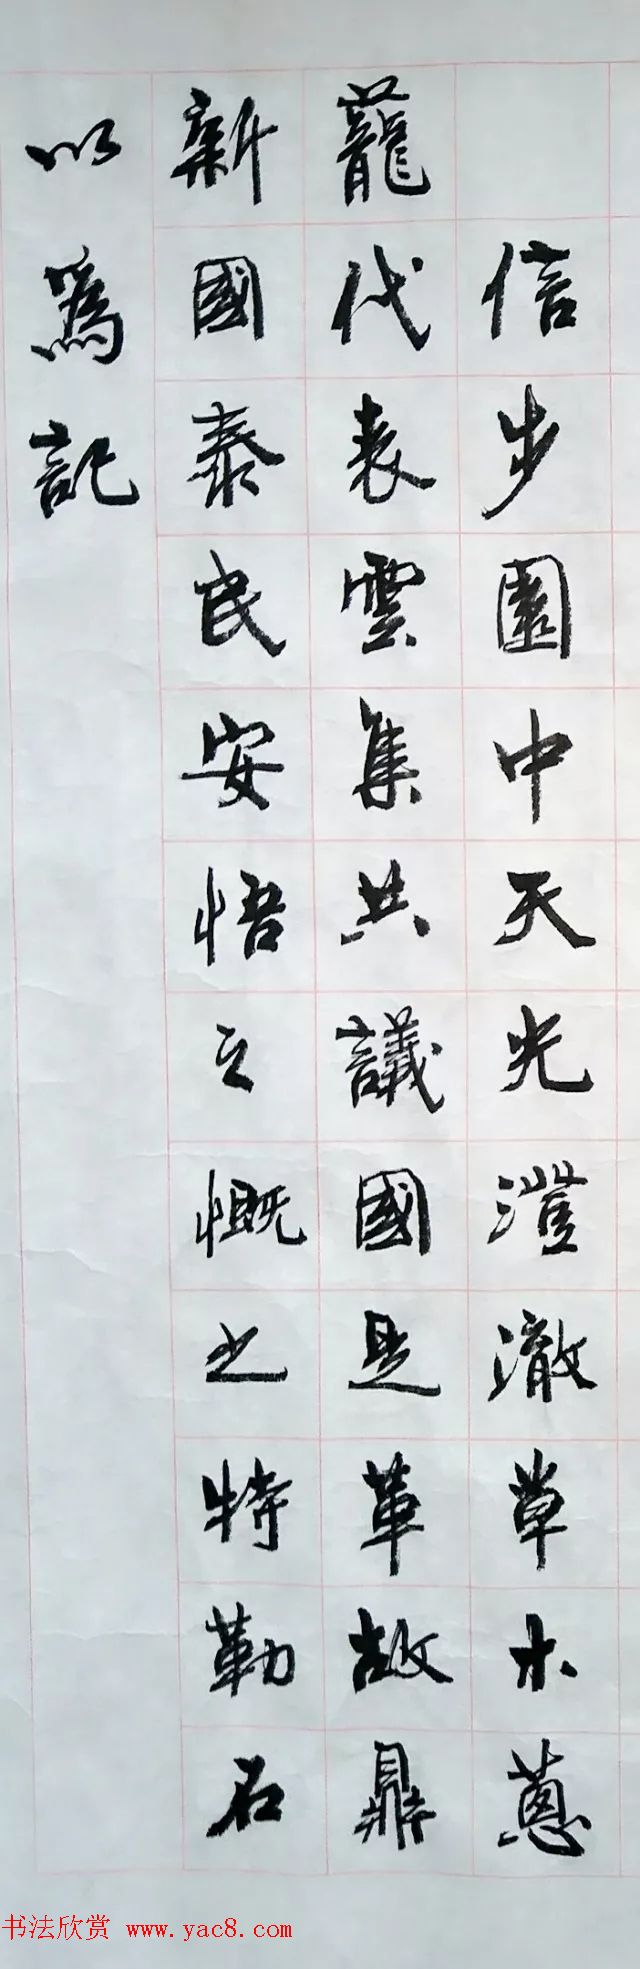 信步園中天光澄澈草木蔥
蘢代表雲集共議國是革故鼎
新國泰民安悟之慨之特勒石
以為記
书法欣赏 www.yac8.com